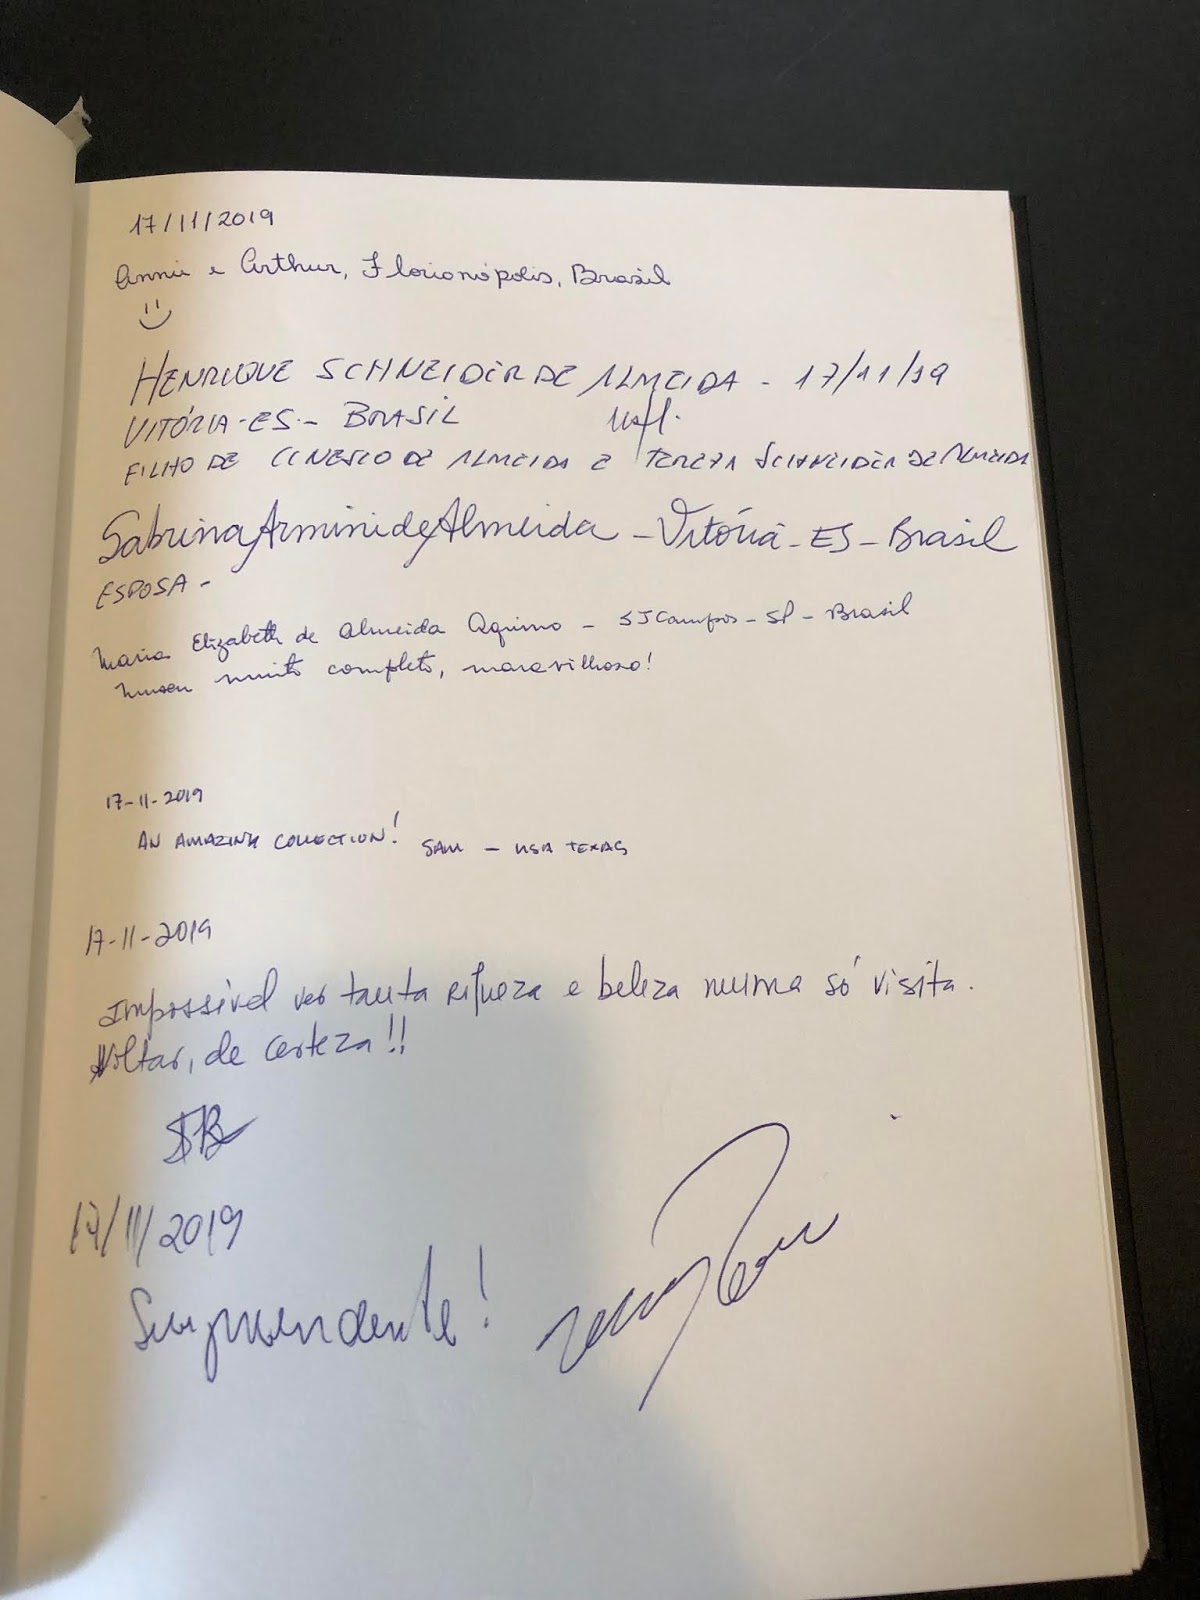 17/11/2019
Annie e Arthur, Florianópolis, Brasil
HENRIQUE SCHNEIDER DE ALMEIDA - 17/11/19
VITÓRIA-ES - BRASIL
FILHO DE CINESIO DE ALMEIDA E TEREZA SCHNEIDER DE ALMEIDA
Sabrina Armini de Almeida - Vitória - ES - Brasil
ESPOSA -
Maria Elizabeth de Almeida Aquino - SJCampos - SP - Brasil
Museu muito completo, maravilhoso!
17-11-2019
AN AMAZING COLLECTION! SAM - USA TEXAS
17-11-2019
Impossível ver tanta riqueza e beleza numa só visita.
Voltar, de certeza!!
17/11/2019
Surpreendente!